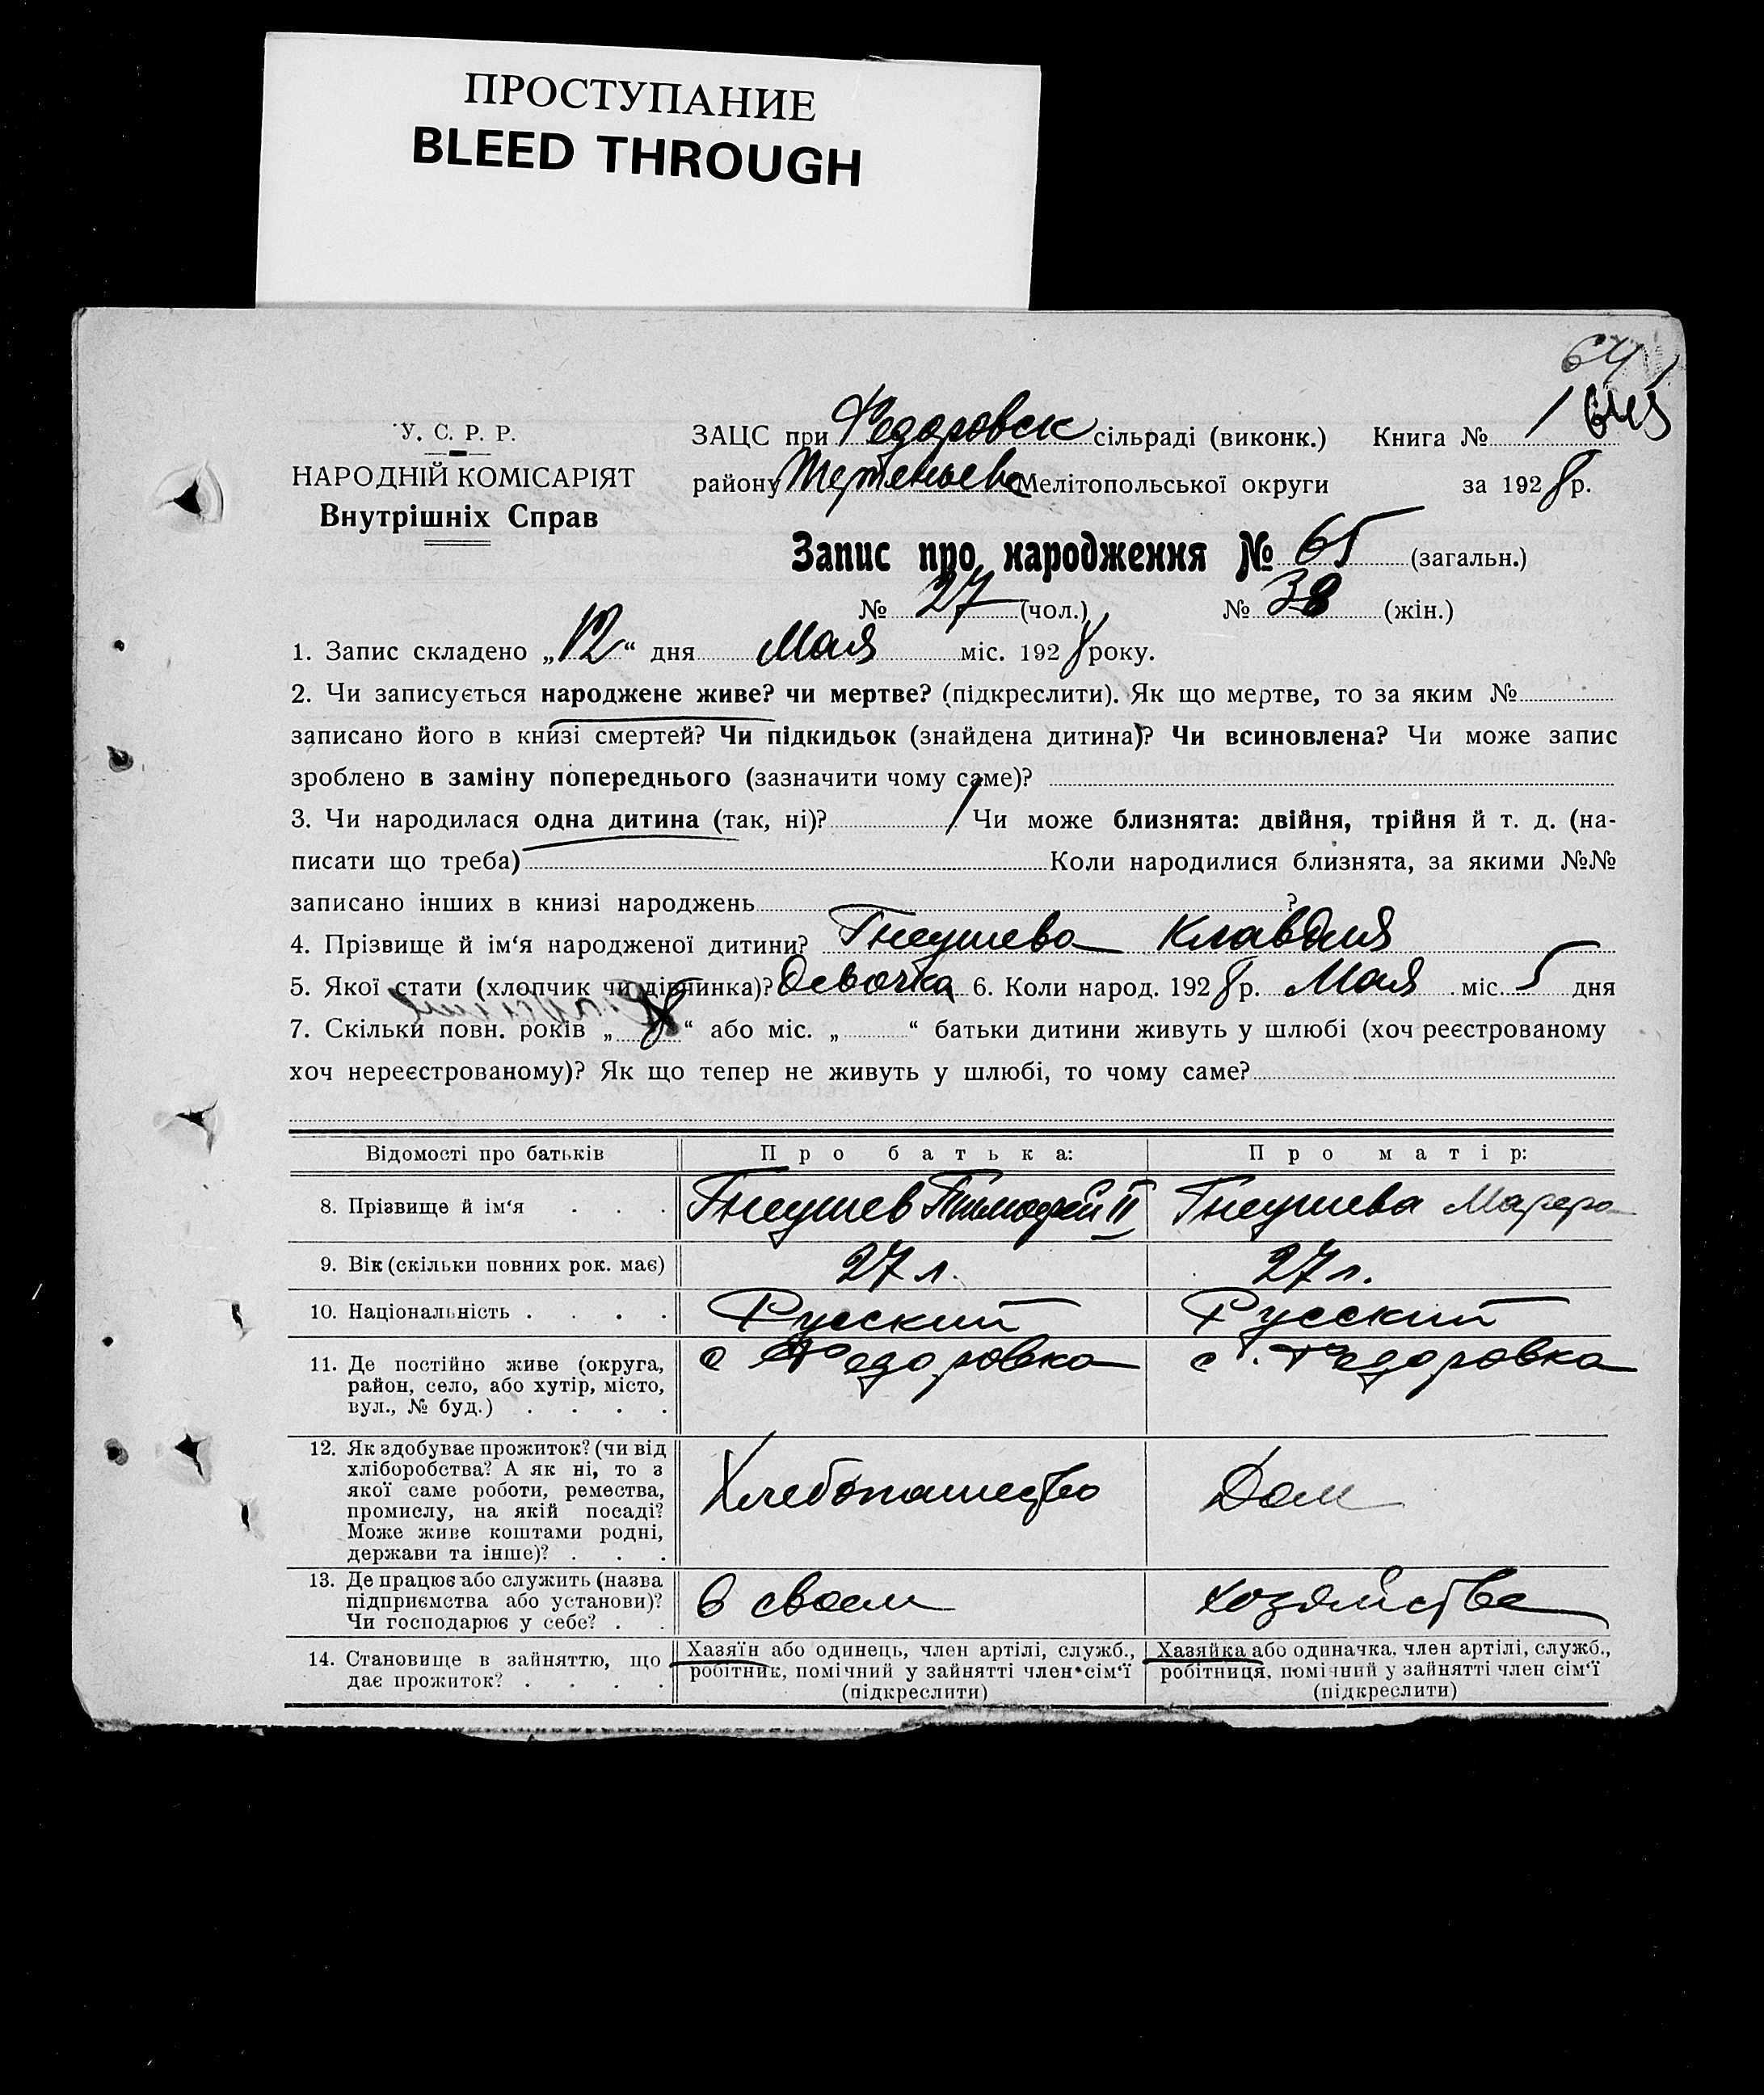 ПРОСТУПАНИЕ
BLEED THROUGH
64
У. С. Р. Р.
НАРОДНІЙ КОМІСАРІЯТ
Внутрішніх Справ
ЗАЦС при Федоровск сільраді (виконк.) Книга № 1
району Мелітопольської округи за 1928 р.
Запис про народження № 65 (загальн.)
№ 27 (чол.) № 38 (жін.)
1. Запис складено „12“ дня Мая міс. 1928 року.
2. Чи записується народжене живе? чи мертве? (підкреслити). Як що мертве, то за яким №
записано його в книзі смертей? Чи підкидьок (знайдена дитина)? Чи всиновлена? Чи може запис
зроблено в заміну попереднього (зазначити чому саме)?
3. Чи народилася одна дитина (так, ні)? Чи може близнята: двійня, трійня й т. д. (на-
писати що треба) Коли народилися близнята, за якими №№
записано інших в книзі народжень ?
4. Прізвище й ім‘я народженої дитини? Гнеушева Клавдия
5. Якої стати (хлопчик чи дівчинка)? Девочка 6. Коли народ. 1928 р. Мая міс. 5 дня
7. Скільки повн. років „8“ або міс. „ “ батьки дитини живуть у шлюбі (хоч реєстрованому
хоч нереєстрованому)? Як що тепер не живуть у шлюбі, то чому саме?
Відомості про батьків Про батька: Про матір:
8. Прізвище й ім‘я Гнеушев Тимофей II Гнеушева
9. Вік (скільки повних рок. має) 27 л. 27 л.
10. Національність Русский Русский
11. Де постійно живе (округа,
район, село, або хутір, місто,
вул., № буд.)
с Федоровка с. Федоровка
12. Як здобуває прожиток? (чи від
хліборобства? А як ні, то з
якої саме роботи, ремества,
промислу, на якій посаді?
Може живе коштами родні,
держави та інше)?
Хлебопашество Дом
13. Де працює або служить (назва
підприємства або установи)?
Чи господарює у себе?
В своем хозяйстве
14. Становище в зайняттю, що
дає прожиток?
Хазяїн або одинець, член артілі, служб.,
робітник, помічний у зайнятті член сім‘ї
(підкреслити)
Хазяйка або одиначка, член артілі, служб.,
робітниця, помічний у зайнятті член сім‘ї
(підкреслити)